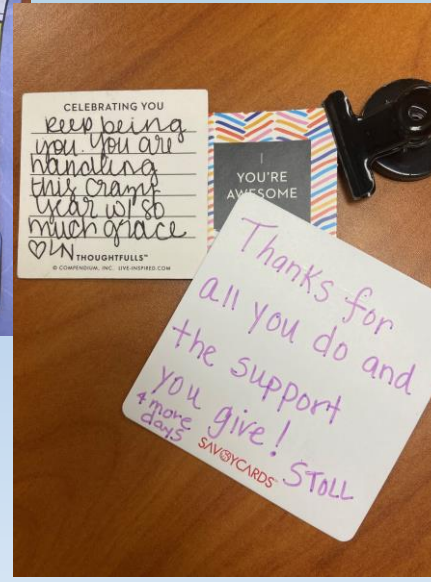 CELEBRATING YOU
Keep being
you. You are
handling
this crazy
year w/ so
much grace
♡LN
THOUGHTFULLS™
© COMPENDIUM, INC. LIVE-INSPIRED.COM
I
YOU'RE
AWESOME
Thanks for
all you do and
the support
you give!
4 more
days
STOLL
SAVOYCARDS